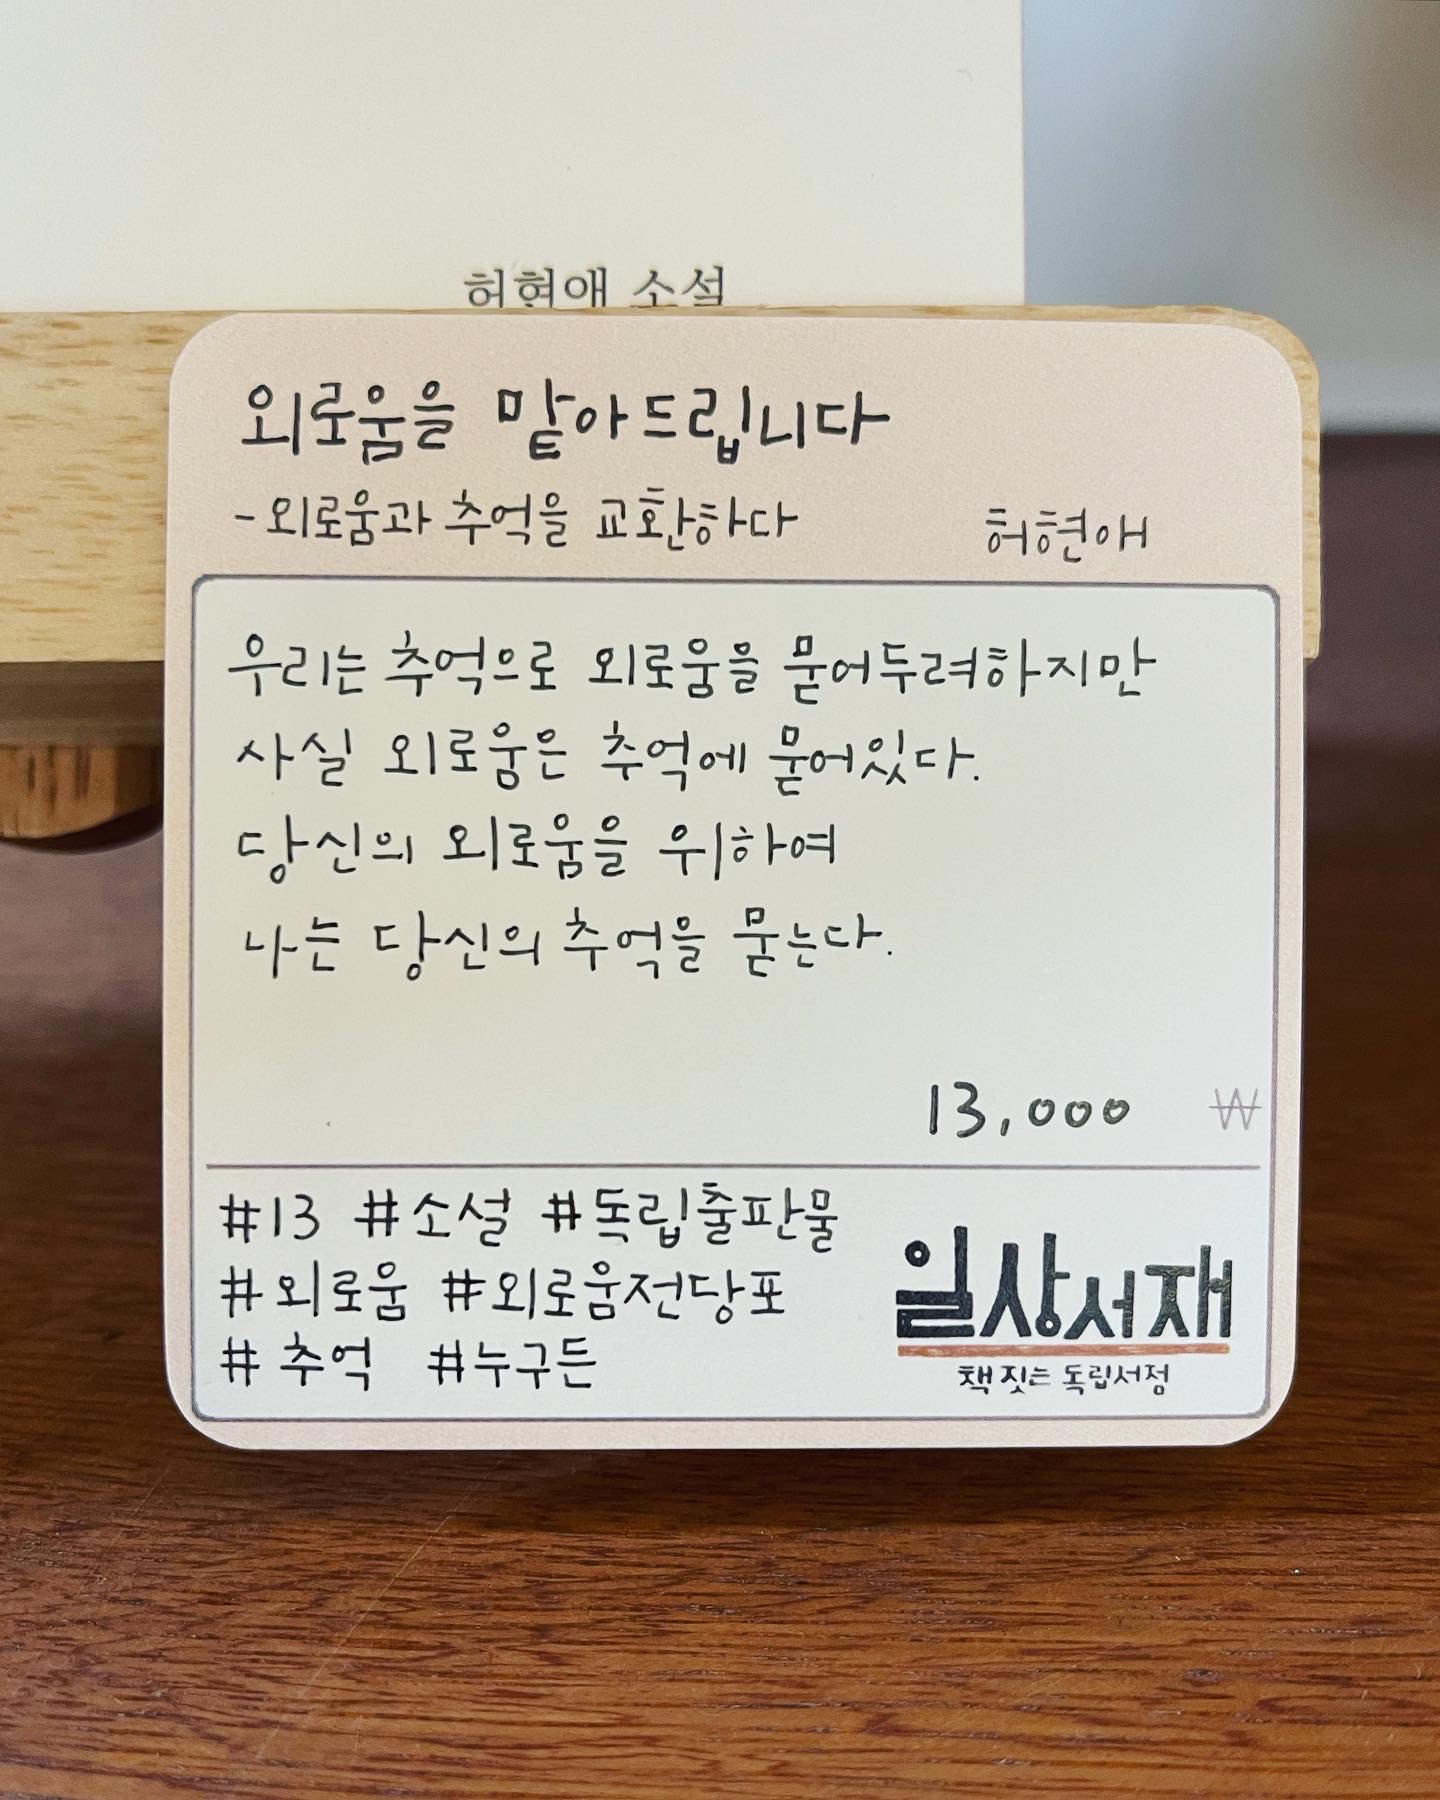 허현애 소설
외로움을 맡아드립니다
-외로움과 추억을 교환하다 허현애
우리는 추억으로 외로움을 묻어두려하지만
사실 외로움은 추억에 묻어있다.
당신의 외로움을 위하여
나는 당신의 추억을 묻는다.
13,000 ₩
#13 #소설 #독립출판물
#외로움 #외로움전당포
#추억 #누구든
일상서재
책 짓는 독립서점